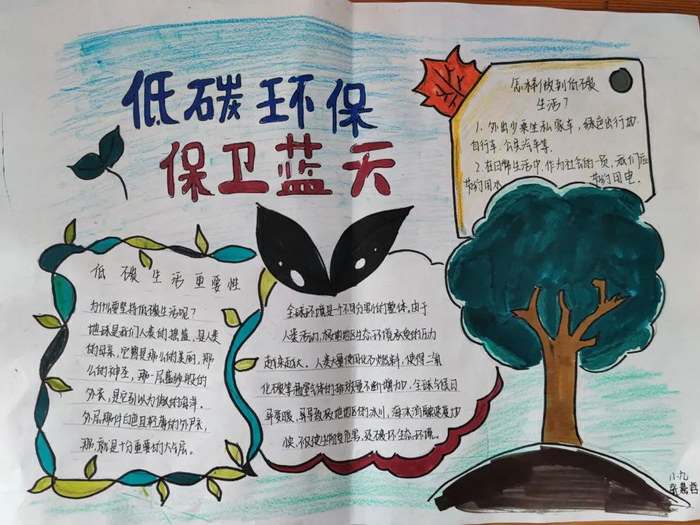 低碳环保
保卫蓝天
怎样做到低碳
生活？
1. 外出少乘坐私家车，绿色出行如
自行车、公共汽车等。
2. 在日常生活中，作为社会的一员，我们应
节约用水 节约用电。
低碳生活重要性
为什么要坚持低碳生活呢？
地球是我们人类的摇篮，是人类
的母亲，它是那么的美丽，那
么的神圣，那一层蓝纱般的
外衣，是它引以为傲的海洋。
外层那件白色且轻薄的外衣，
那，就是十分重要的大气层。
全球环境是一个不可分割的整体，由于
人类活动，极地地区生态环境承受的压力
越来越大。人类大量使用化石燃料，使得二氧
化碳等温室气体的排放量不断增加，全球气候日
益变暖，导致极地地区的冰川，海冰消融速度加
快，不仅使生物受危害，还破坏生态环境。
八.九